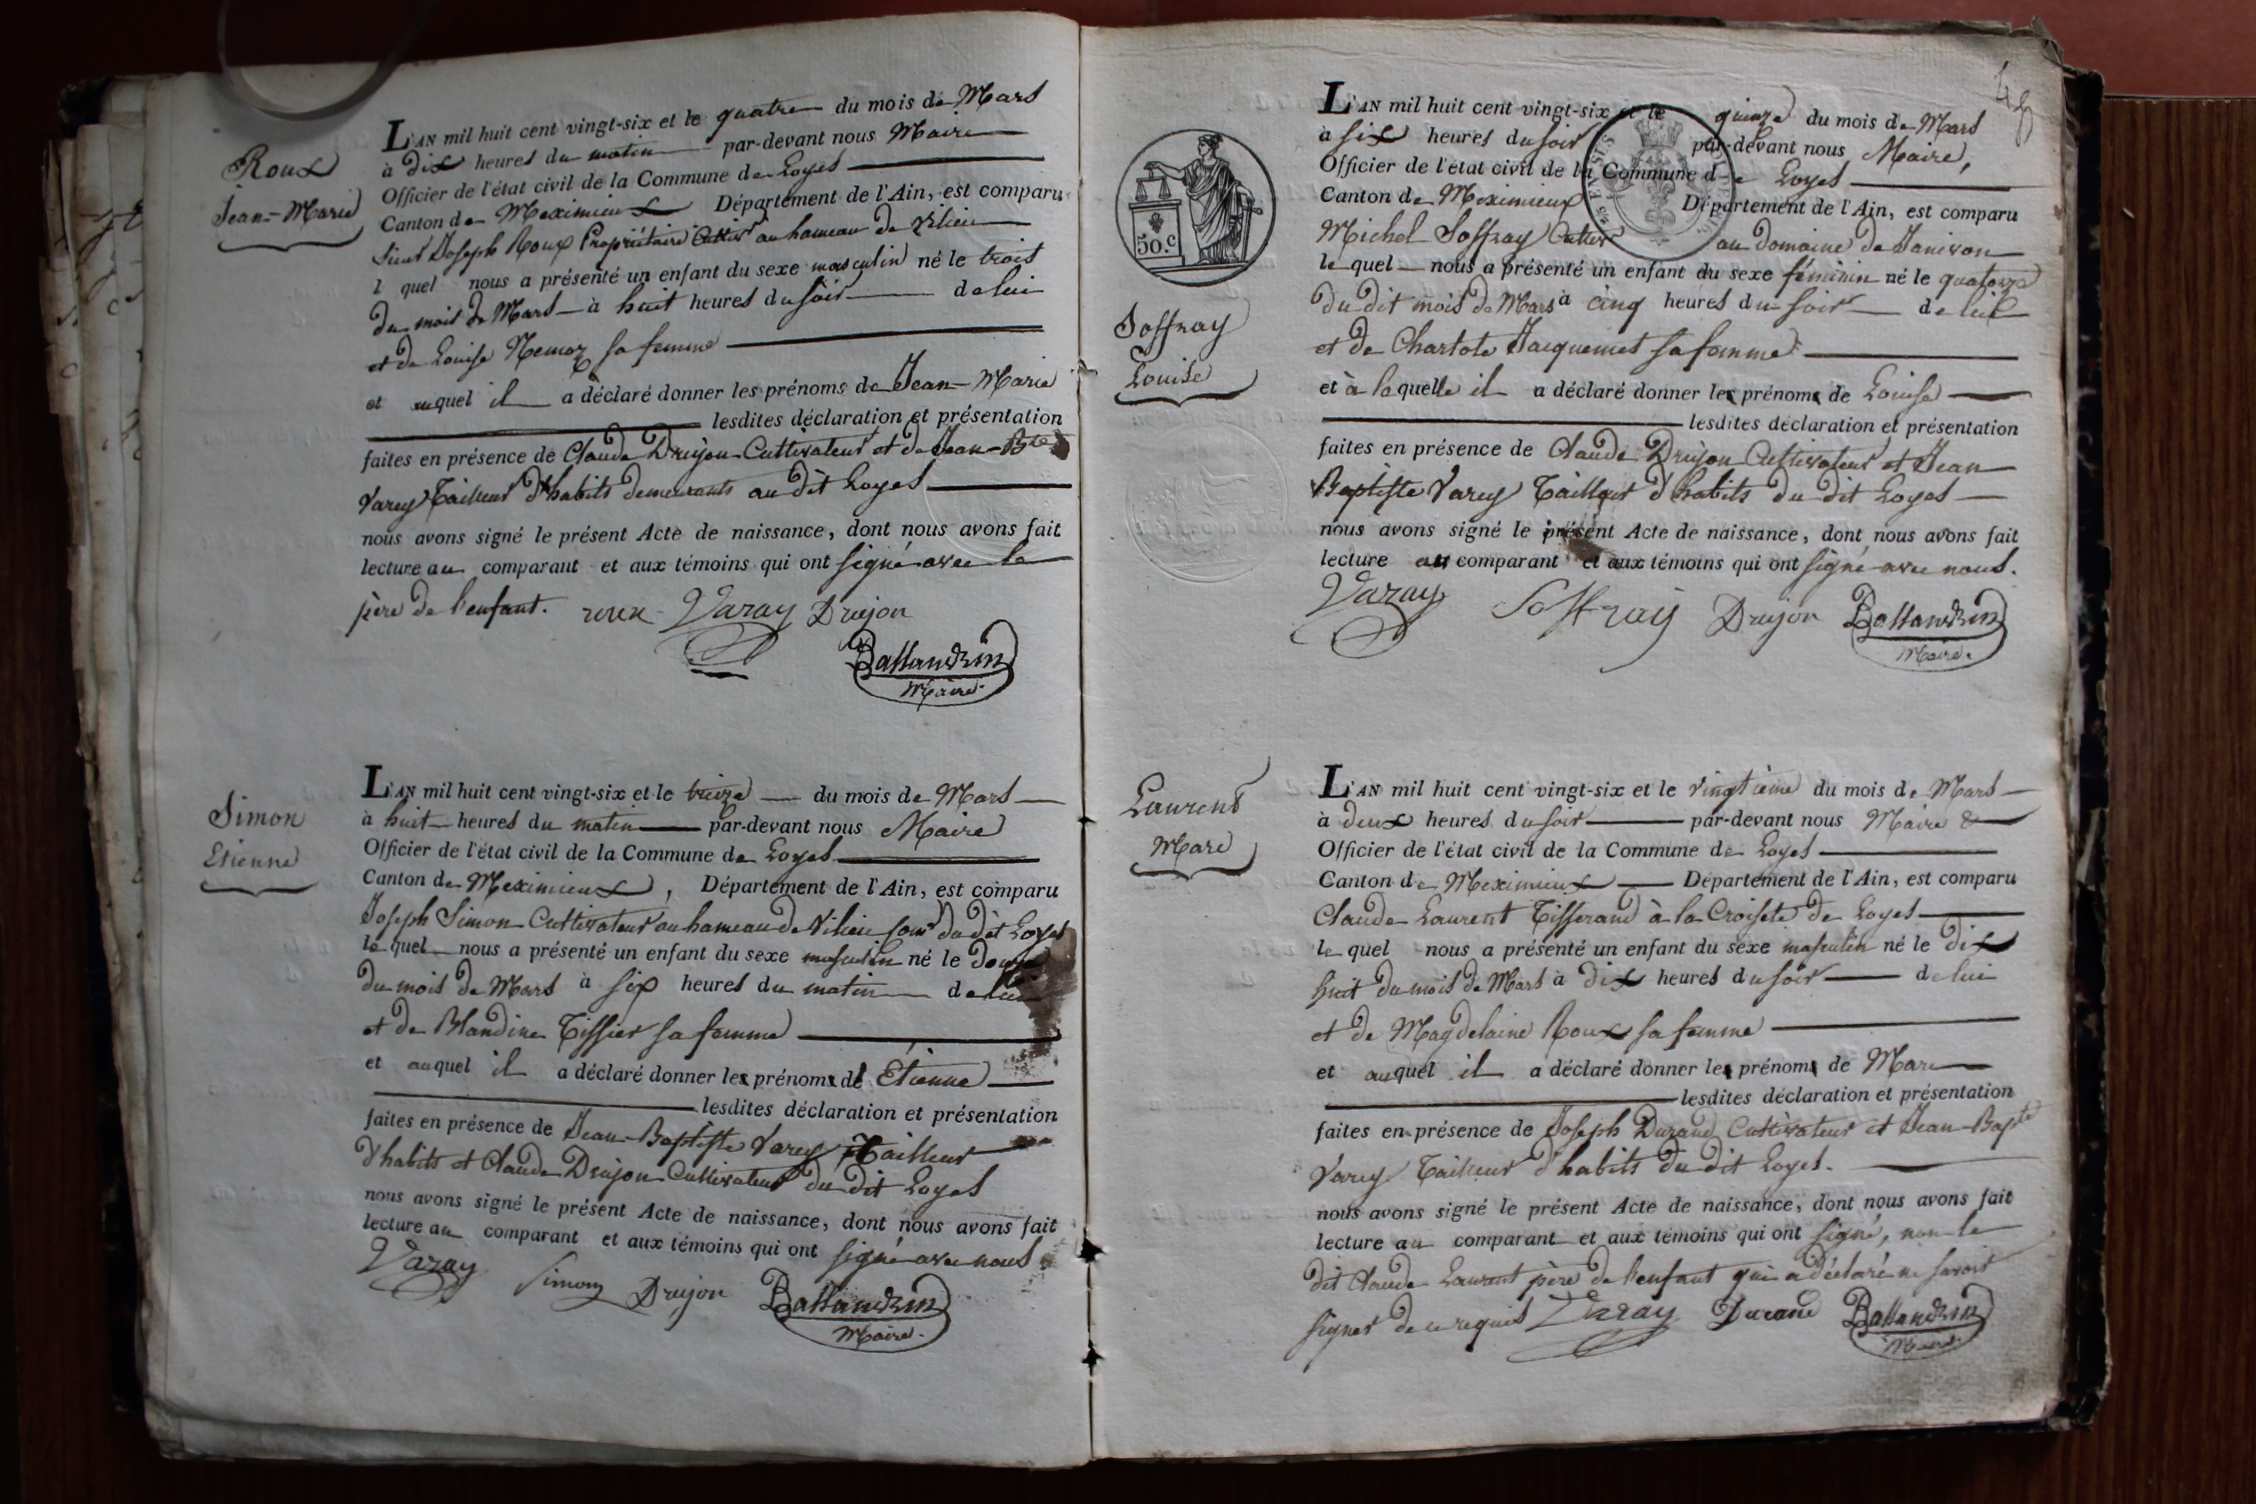 Roux
Jean-Marie
L'AN mil huit cent vingt-six et le quatre du mois de Mars
à dix heures du matin par-devant nous Maire
Officier de l'état civil de la Commune de Loyes
Canton de Meximieux Département de l'Ain, est comparu
Sieur Joseph Roux Propriétaire Cultivr au hameau de Vilieu
l quel nous a présenté un enfant du sexe masculin né le trois
du mois de Mars à huit heures du soir de lui
et de Louise Nemoz sa femme
et auquel il a déclaré donner les prénoms de Jean-Marie
lesdites déclaration et présentation
faites en présence de Claude Drujon Cultivateur et de Jean-Bte
Varey Tailleur d'habits demeurants au dit Loyes
nous avons signé le présent Acte de naissance, dont nous avons fait
lecture au comparant et aux témoins qui ont signé avec le
père de l'enfant. roux Varay Drujon
Ballandrin
Maire.
Simon
Etienne
L'AN mil huit cent vingt-six et le treize du mois de Mars
à huit heures du matin par-devant nous Maire
Officier de l'état civil de la Commune de Loyes
Canton de Meximieux, Département de l'Ain, est comparu
Joseph Simon Cultivateur au hameau de Vilieu Comne du dit Loyes
le quel nous a présenté un enfant du sexe masculin né le douze
du mois de Mars à six heures du matin de lui
et de Blandine Tissier sa femme
et auquel il a déclaré donner les prénoms de Étienne
lesdites déclaration et présentation
faites en présence de Jean-Baptiste Varey Tailleur
d'habits et Claude Drujon Cultivateur du dit Loyes
nous avons signé le présent Acte de naissance, dont nous avons fait
lecture au comparant et aux témoins qui ont signé avec nous
Varay Simon Drujon Ballandrin
Maire.
48
50.c
Soffray
Louise
L'AN mil huit cent vingt-six et le quinze du mois de Mars
à six heures du soir par-devant nous Maire,
Officier de l'état civil de la Commune de Loyes
Canton de Meximieux Département de l'Ain, est comparu
Michel Soffray Cultivr au domaine de Janivon
le quel nous a présenté un enfant du sexe féminin né le quatorze
du dit mois de Mars à cinq heures du soir de lui
et de Charlote Jacquemet sa femme
et à laquelle il a déclaré donner les prénoms de Louise
lesdites déclaration et présentation
faites en présence de Claude Drujon Cultivateur et Jean
Baptiste Varey Tailleur d'habits du dit Loyes
nous avons signé le présent Acte de naissance, dont nous avons fait
lecture au comparant et aux témoins qui ont signé avec nous.
Varay Soffray Drujon Ballandrin
Maire.
Laurent
Marc
L'AN mil huit cent vingt-six et le vingtième du mois de Mars
à deux heures du soir par-devant nous Maire &
Officier de l'état civil de la Commune de Loyes
Canton de Meximieux Département de l'Ain, est comparu
Claude Laurent Tisserand à la Croisete de Loyes
le quel nous a présenté un enfant du sexe masculin né le dix
huit du mois de Mars à dix heures du soir de lui
et de Magdelaine Roux sa femme
et auquel il a déclaré donner les prénoms de Marc
lesdites déclaration et présentation
faites en présence de Joseph Durand Cultivateur et Jean-Bapte
Varey Tailleur d'habits du dit Loyes.
nous avons signé le présent Acte de naissance, dont nous avons fait
lecture au comparant et aux témoins qui ont signé, non le
dit Claude Laurent père de l'enfant qui a déclaré ne savoir
signer de ce requis Varay Durand Ballandrin
Maire